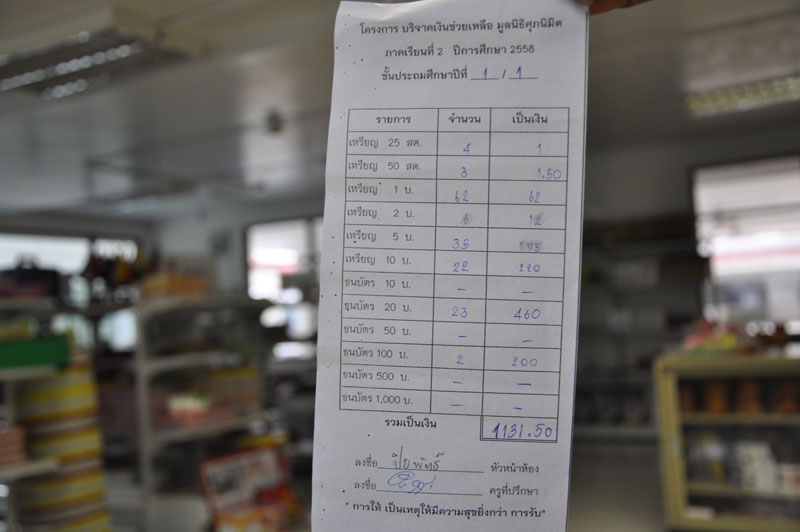 โครงการ บริจาคเงินช่วยเหลือ มูลนิธิศุภนิมิต
ภาคเรียนที่ 2 ปีการศึกษา 2558
ชั้นประถมศึกษาปีที่ 1 / 1
รายการ จำนวน เป็นเงิน
เหรียญ 25 สต. 4 1
เหรียญ 50 สต. 3 1.50
เหรียญ 1 บ. 62 62
เหรียญ 2 บ. 6 12
เหรียญ 5 บ. 35 175
เหรียญ 10 บ. 22 220
ธนบัตร 10 บ. - -
ธนบัตร 20 บ. 23 460
ธนบัตร 50 บ. - -
ธนบัตร 100 บ. 2 200
ธนบัตร 500 บ. - -
ธนบัตร 1,000 บ. - -
รวมเป็นเงิน 1131.50
ลงชื่อ หัวหน้าห้อง
ลงชื่อ ครูที่ปรึกษา
" การให้ เป็นเหตุให้มีความสุขยิ่งกว่า การรับ"